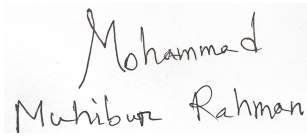 Mohammad
Muhibur Rahman